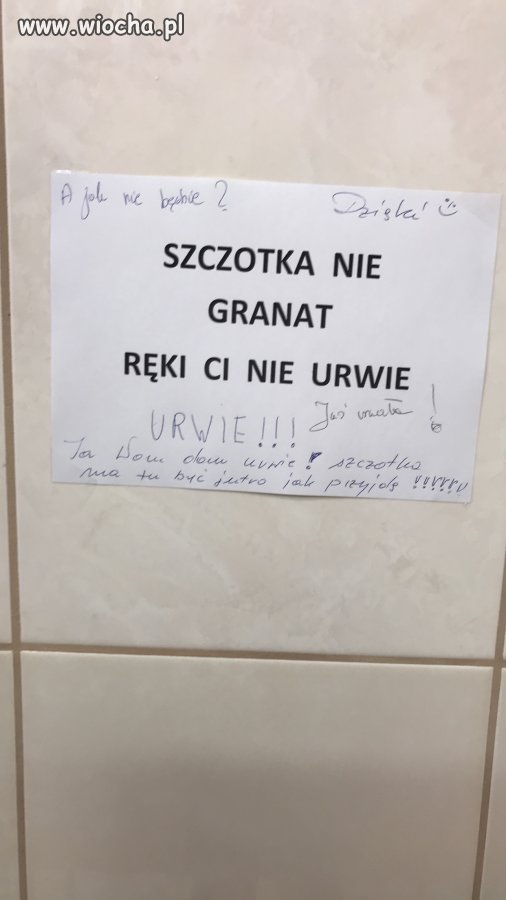 www.wiocha.pl
A jak nie będzie?
Dzięki
SZCZOTKA NIE
GRANAT
RĘKI CI NIE URWIE
Już urwała!
URWIE!!!
Ja Wam dam urwie! szczotka
ma tu być jutro jak przyjdę !!!!!!